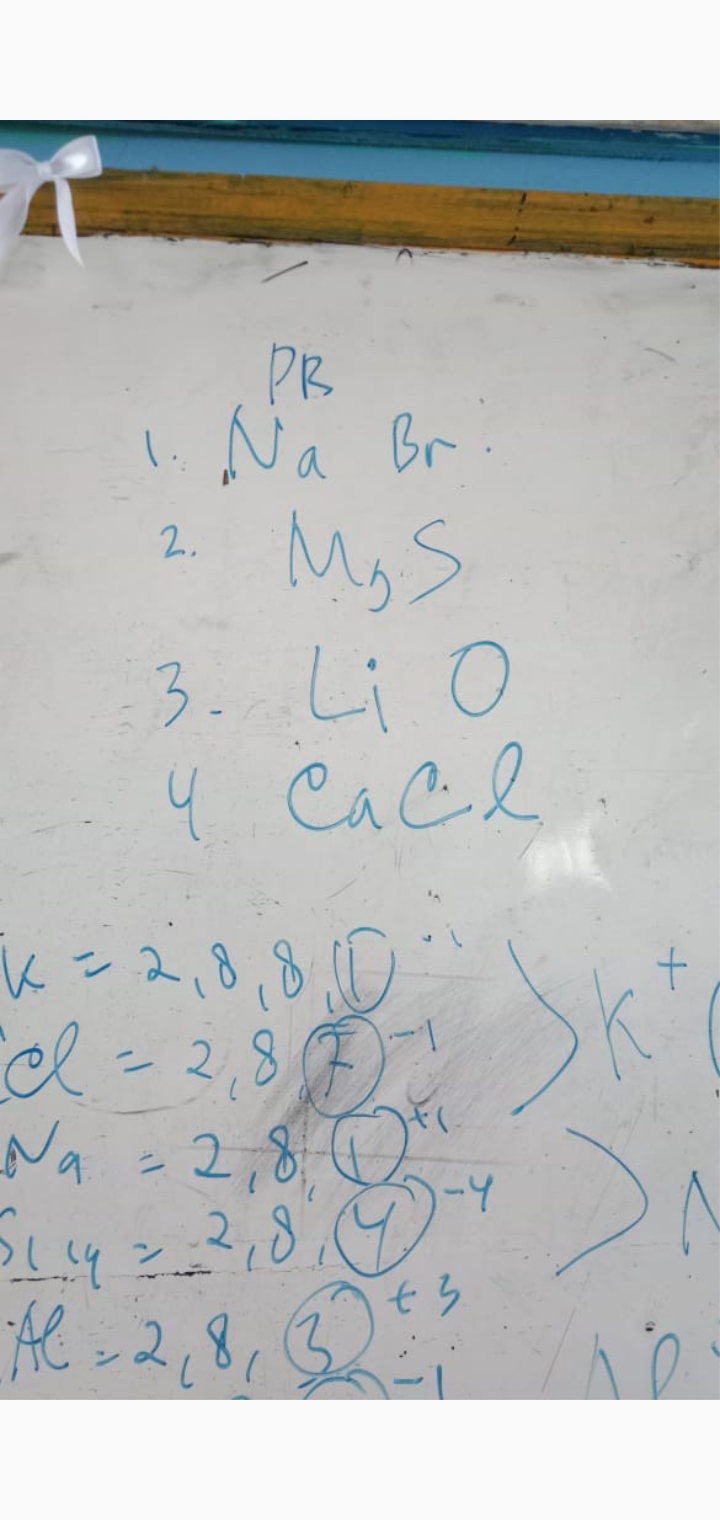 PB
1. Na Br.
2. Mg S
3. Li O
4 CaCl
K = 2,8,8,1
Cl = 2,8,7 -1
K+
Na = 2,8,1 +1
Si 14 = 2,8,4 -4
N
Al = 2,8,3 +3
-1